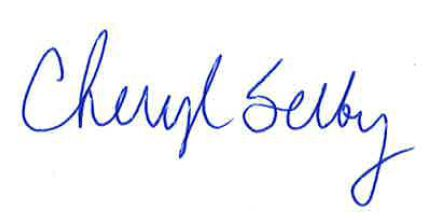 Cheryl Selby